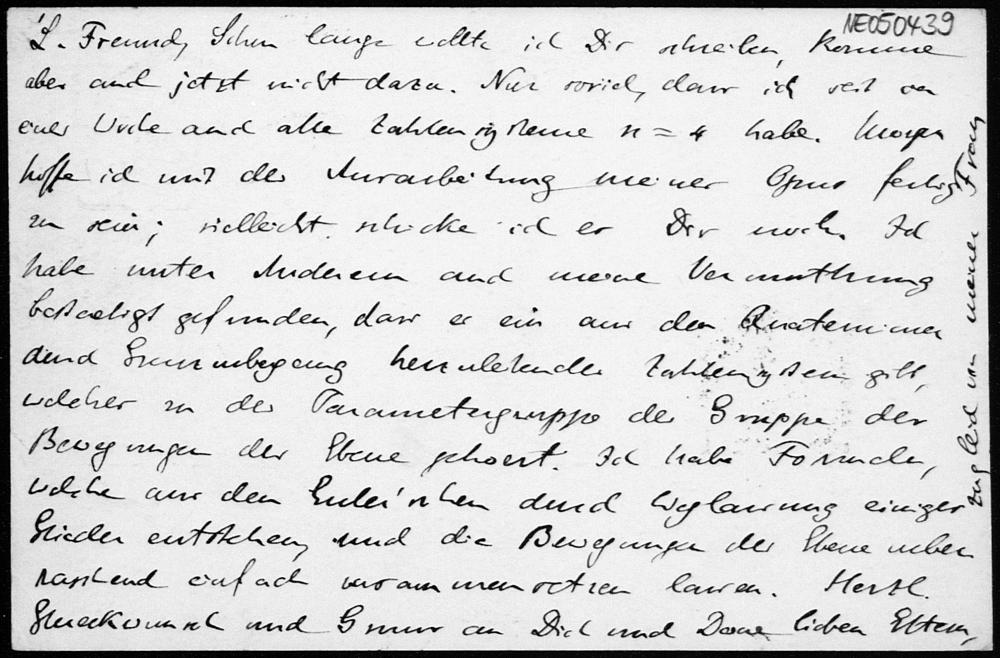 NE050439
L. Freund, Schon lange wollte ich Dir schreiben, komme
aber auch jetzt nicht dazu. Nur soviel, dass ich seit ca
einer Woche auch alle Zahlensysteme n = 4 habe. Morgen
hoffe ich mit der Ausarbeitung meines Opus fertig
zu sein; vielleicht schicke ich es Dir noch. Ich
habe unter Anderem auch meine Vermuthung
bestaetigt gefunden, dass es ein aus den Quaternionen
durch Grenzuebergang herzuleitendes Zahlensystem gibt,
welches zu der Parametergruppe der Gruppe der
Bewegungen der Ebene gehoert. Ich habe Formeln,
welche aus den Euler'schen durch Weglassung einiger
Glieder entstehen, und die Bewegungen der Ebene ueber
raschend einfach zusammensetzen lassen. Herzl.
Glueckwunsch und Gruss an Dich und Deine lieben Eltern,
zugleich von meiner Frau